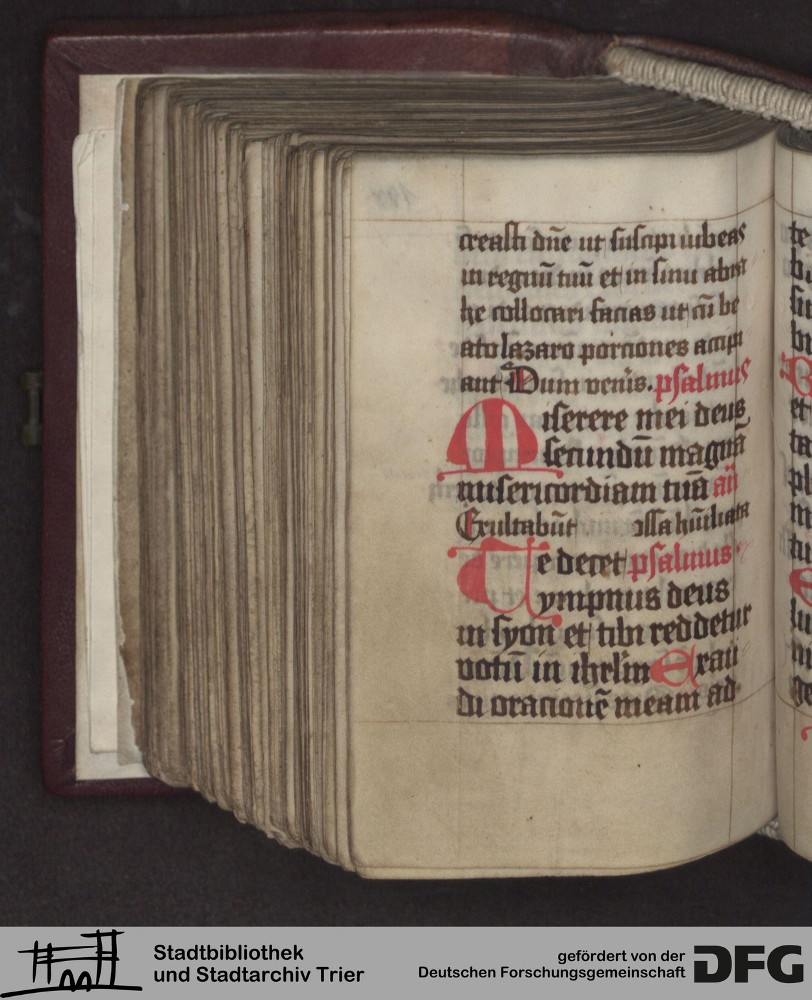 creasti dn̄e ut suscipi iubeas
in regnū tuū et in sinu abra
he collocari facias ut cū be
ato lazaro porciones accipi
ant Dum ven̄is. psalmus
Miserere mei deus
secundū magnā
misericordiam tuā añ
Exultabūt ossa hūiliata
Te decet psalmus
ympnus deus
in syon et tibi reddetur
votū in ihrl̄m Exau
di oracionē meam ad
te
et
Stadtbibliothek
und Stadtarchiv Trier
gefördert von der
Deutschen Forschungsgemeinschaft
DFG